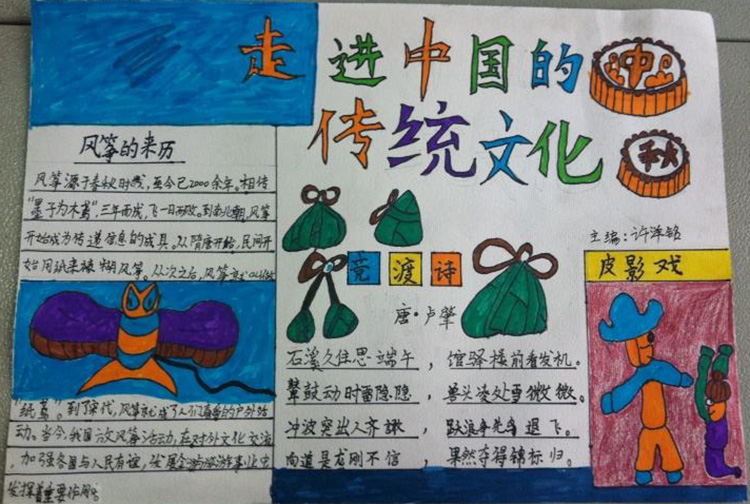 走进中国的
传统文化
中
秋
主编:许泽铭
风筝的来历
风筝源于春秋时代,至今已2000余年。相传
"墨子为木鸢"三年而成,飞一日而败。到南北朝,风筝
开始成为传递信息的成具。从隋唐开始,民间开
始用纸来裱糊风筝。从次之后,风筝
"纸鸢"。到了宋代,风筝就成了人们喜爱的户外活
动。当今,我国
风筝活动,在对外文化交流
,加强各国与人民友谊,发展
旅游事业中
发挥着重要作用。
竞渡诗
唐·卢肇
石溪久住思端午,馆驿楼前看发机。
鼙鼓动时雷隐隐,兽头凌处雪微微。
冲波突出人齐譀,跃浪争先鸟退飞。
向道是龙刚不信,果然夺得锦标归。
皮影戏